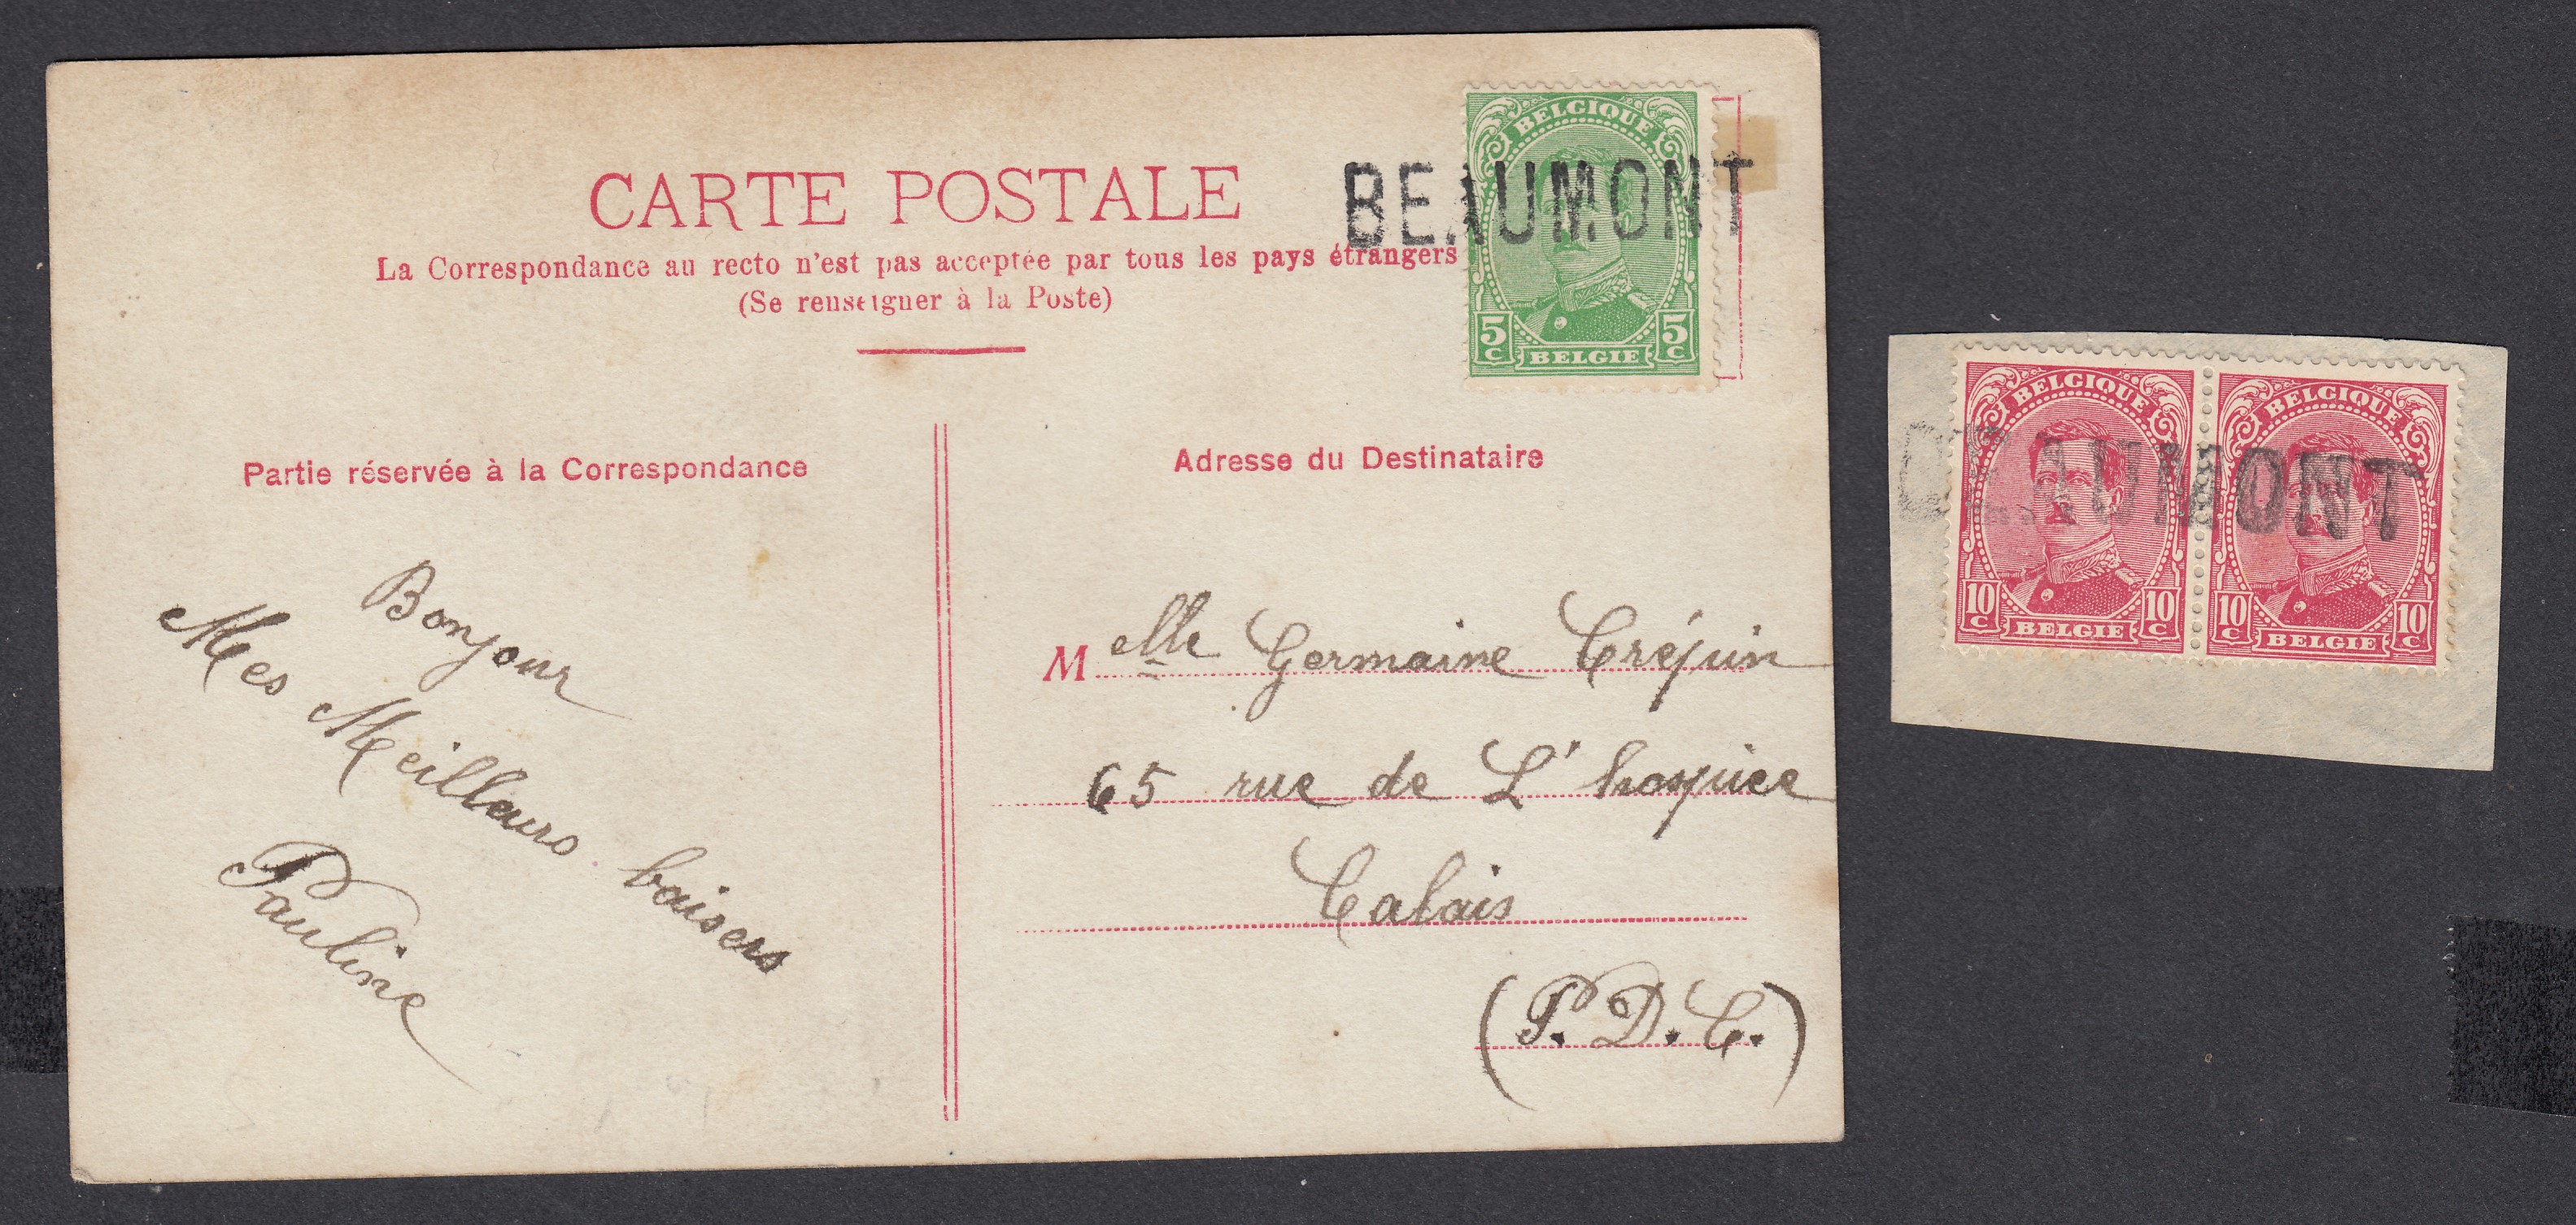 CARTE POSTALE
La Correspondance au recto n'est pas acceptée par tous les pays étrangers
(Se renseigner à la Poste)
BELGIQUE
BEAUMONT
5c 5c
BELGIE
Partie réservée à la Correspondance
Bonjour
Mes Meilleurs baisers
Pauline
Adresse du Destinataire
Melle Germaine Crépin
65 rue de L'hospice
Calais
(P.D.C.)
BELGIQUE BELGIQUE
BEAUMONT
10c 10c 10c 10c
BELGIE BELGIE